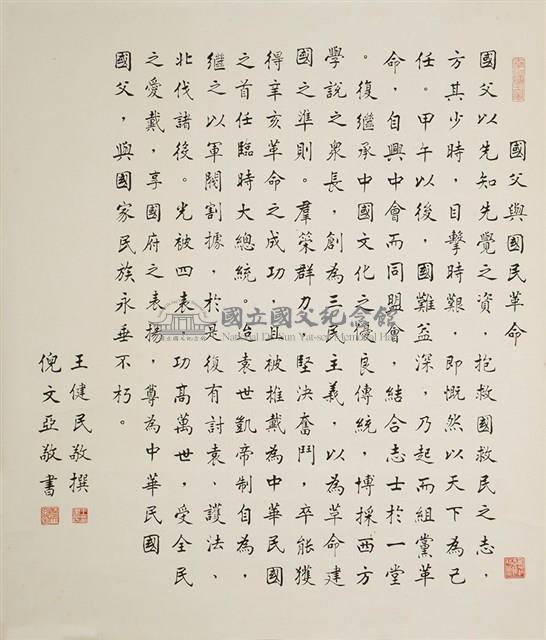 國父與國民革命
國父以先知先覺之資，抱救國救民之志，
方其少時，目擊時艱，即慨然以天下為己
任。甲午以後，國難益深，乃起而組黨革
命，自興中會而同盟會，結合志士於一堂
。復繼承中國文化之優良傳統，博採西方
學說之衆長，創為三民主義，以為革命建
國之準則。羣策群力，堅決奮鬥，卒能獲
得辛亥革命之成功，且被推戴為中華民國
之首任臨時大總統。迨袁世凱帝制自為，
繼之以軍閥割據，於是復有討袁、護法、
北伐諸役。光被四表，功高萬世，受全民
之愛戴，享國府之表揚，尊為中華民國
國父，與國家民族永垂不朽。
王健民敬撰
倪文亞敬書
國立國父紀念館
National Dr. Sun Yat-sen Memorial Hall